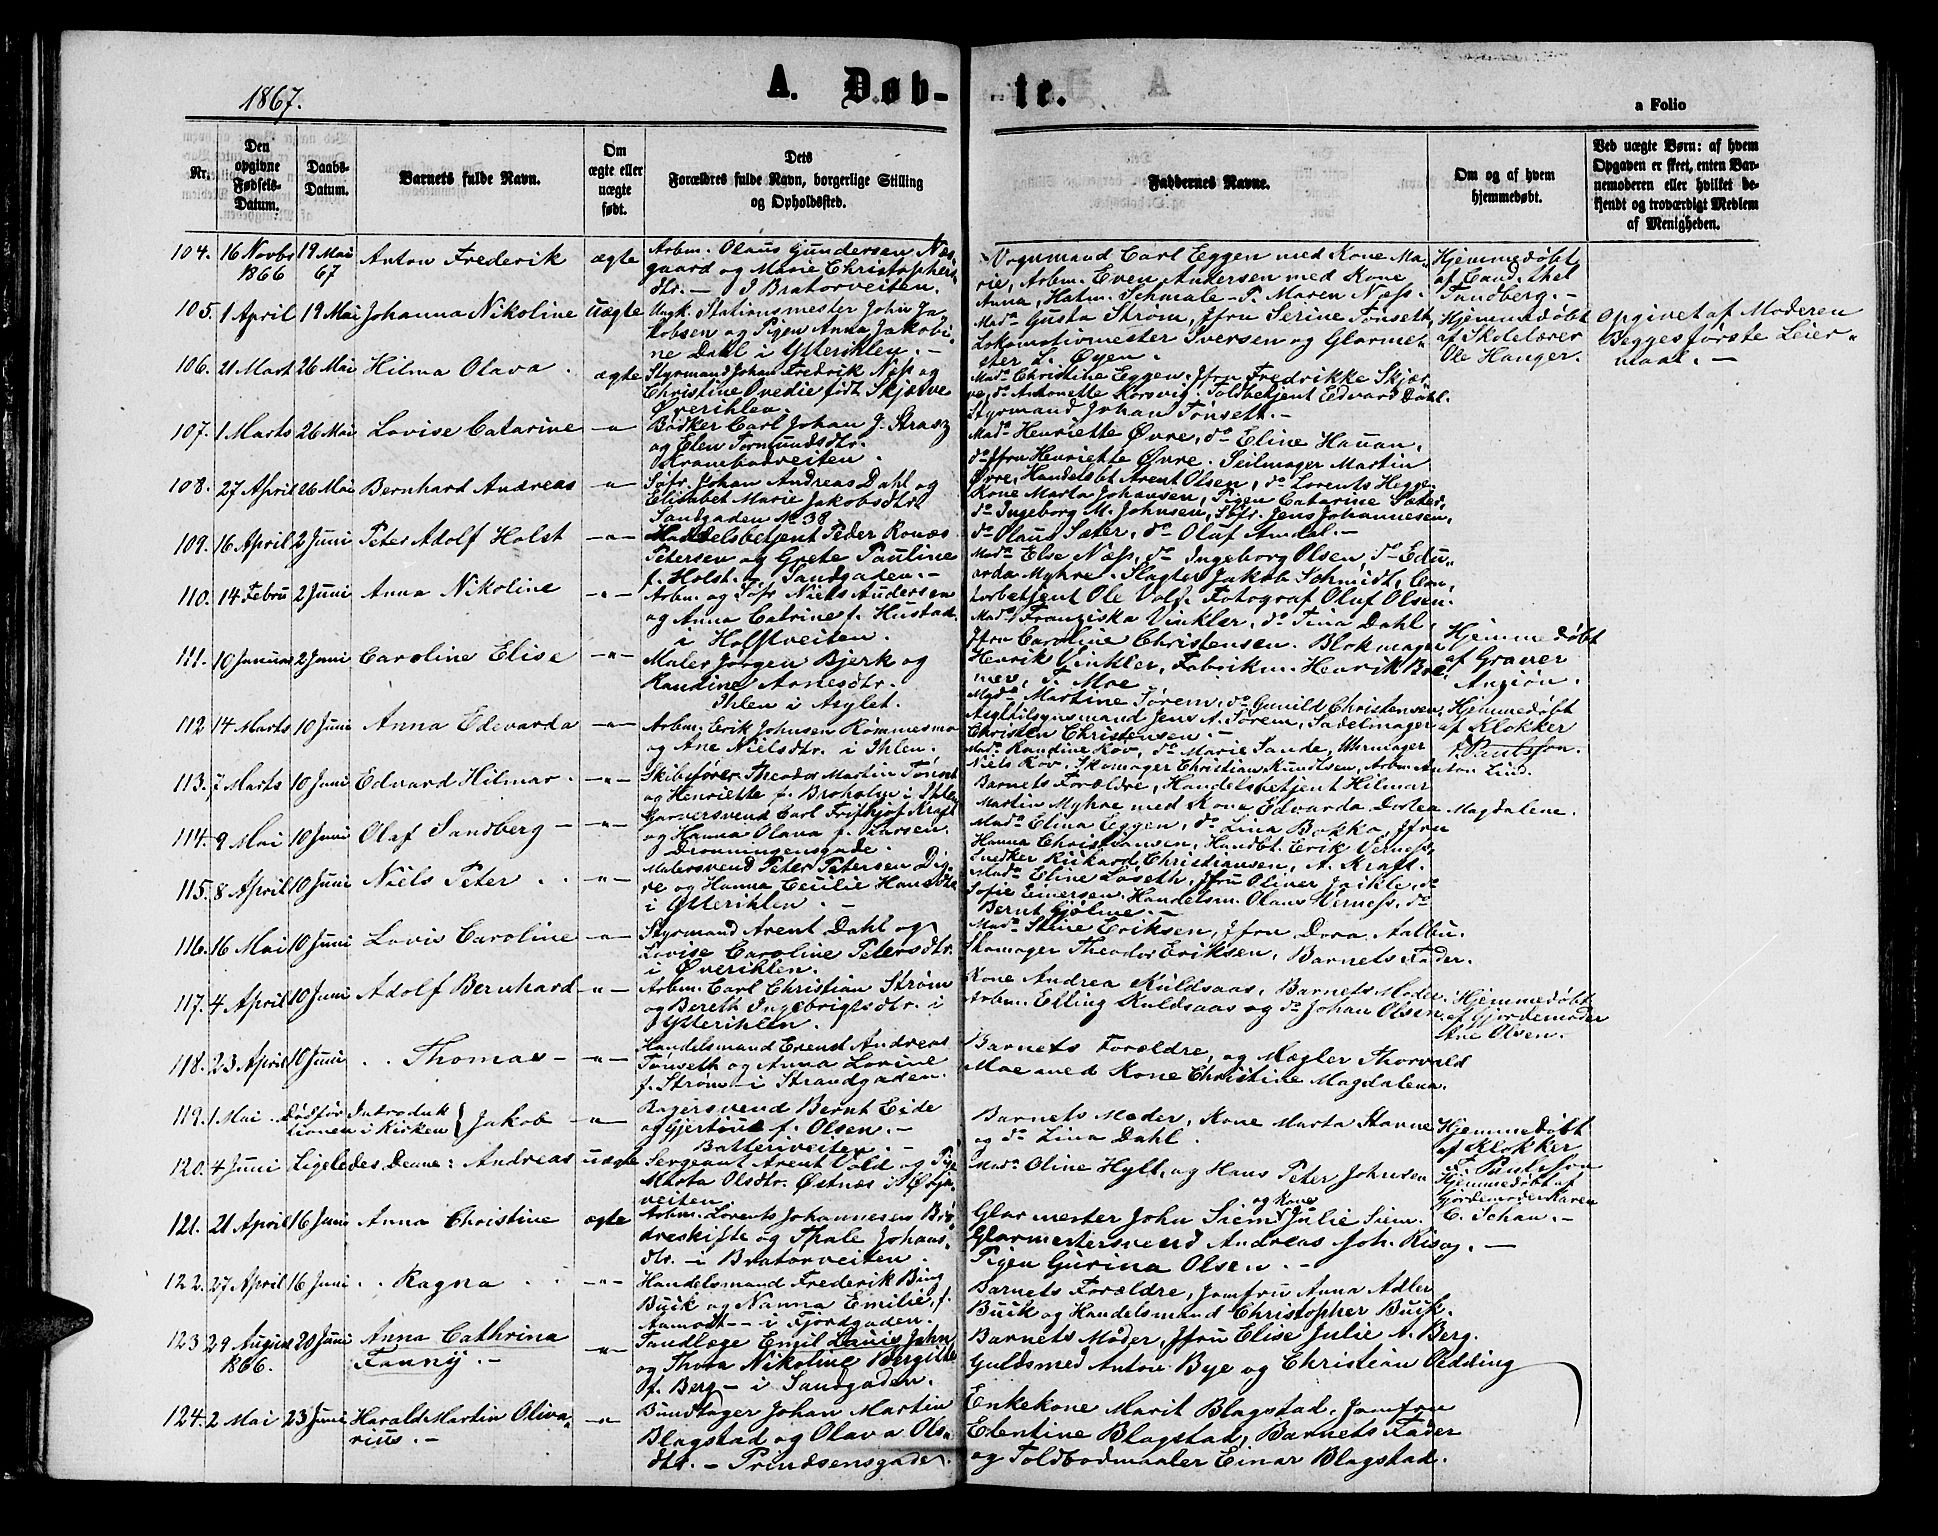 1867.
A. Døb-
te.
a Folio
Nr.
Den opgivne Fødsels-Datum.
Daabs-Datum.
Barnets fulde Navn.
Om ægte eller uægte født.
Dets Forældres fulde Navn, borgerlige Stilling og Opholdssted.
Faddernes Navne.
Om og af hvem hjemmedøbt.
Ved uægte Børn: af hvem Opgaven er skeet, enten Barnemoderen eller hvilket bekjendt og troværdigt Medlem af Menigheden.
104. 16 Novbr 1866 19 Mai 67 Anton Frederik ægte
Arbm. Olaus Gundersen Næs-
gaard og Marie Christophers-
dtr. - I Bratørveiten.
Vognmand Carl Eggen med Kone Ma-
rie, Arbm. Even Andersen med Kone
Anna, Hatm. Schmale - P. Maren Næss.
Hjemmedøbt
af Cand. thel
Sandberg. -
105. 1 April 19 Mai Johanna Nikoline uægte
Ungk. Stationsmester John Ja-
kobsen og Pigen Anna Jakobi-
ne Dahl i Ytterihlen. -
Mad. Gusta Strøm, Jfru Serine Tønseth,
Lokomotivmester Iversen og Glarme-
ster L. Øyen.
Hjemmedøbt
af Skolelærer
Ole Hanger.
Opgivet af Moderen
Begges første Leier-
maal. -
106. 21 Mart 26 Mai Hilma Olava. ægte
Styrmand Johan Fredrik Næss og
Christine Ovedie født Skjærve
Øverihlen.
Mad. Christine Eggen, Jfru Fredrikke Skjær-
ve, do Antonette Korsvig. Toldbetjent Edvard Dahl.
Styrmand Johan Tønseth. -
107. 1 Marts 26 Mai Lovise Catarine -"-
Bødker Carl Johan J. Strasz
og Elen Tormundsdtr.
Kranebodveiten.
Mad. Henriette Øvre, do Eline Hauan,
do Jfru Henriette Øvre. Seilmager Martin
Øvre, Handelsbt. Arent Olsen, do Lorents Hegge.
108. 27 April 26 Mai Bernhard Andreas -"-
Søfr. Johan Andreas Dahl og
Elisabet Marie Jakobsdtr.
Sandgaden No 38
Kone Marta Johansen, Pigen Catarine Sæter,
do Ingeborg M. Johnsen, Søfr. Jens Johannesen,
do Olaus Sæter, do Oluf Amdal. -
109. 16 April 2 Juni Peter Adolf Holst -"-
Handelsbetjent Peder Ronæs
Petersen og Grete Pauline
f. Holst. I Sandgaden. -
Mad. Else Næss, do Ingeborg Olsen, do Edu-
arda Myhre. Slagter Jakob Schmidt, Con-
torbetjent Ole Vold. Fotograf Oluf Olsen.
110. 14 Febru 2 Juni Anna Nikoline -"-
Arbm. og Søfr Niels Andersen
og Anna Catrine f. Hustad
i Holstveiten.
Mad. Franziska Vinkler, do Tina Dahl,
Jfru Caroline Christensen. Blokmager
Henrik Vinkler, Fabrikm. Henrik
111. 10 Januar 2 Juni Caroline Elise -"-
Maler Jørgen Bjerk og
Randine Arnesdtr.
Ihlen i Asylet.
Hjemmedøbt
af Graver
112 14 Marts 10 Juni Anna Edevarda -"-
Arbm. Erik Johnsen Rømmesmo
og Ane Nielsdtr. i Ihlen.
Mad. Martine Sørem, do Gunild Christensen,
Jens A. Sørem, Sadelmager
Christen Christensen. -
Hjemmedøbt
af Klokker
Paulsson.
113. 7 Marts 10 Juni Edvard Hilmar. -"-
Skibsfører Theodor Martin Tønset
og Henriette f. Broholm i Ihlen
Mad. Randine Rov, do Marie Sande, Uhrmager
Niels Rov, Skomager Christian Knudtsen, Arbm. Anton Lind.
Barnets Forældre, Handelsbetjent Hilmar
Martin Myhre med Kone Edvarda Dortea Magdalene.
114. 9 Mai 10 Juni Olaf Sandberg - -"-
Garversvend Carl Frithjof Kraft
og Hanna Olava f. Larsen.
Dronningensgade.
Mad. Elina Eggen, do Lina Bokka, Jfru
Hanna Christiansen, Handbt. Erik Verness,
Snedker Rickard Christiansen, A. Kraft.
115. 8 April 10 Juni Niels Peter . . -"-
Malersvend Peter Petersen Dig-
re og Hanna Cecilie Hansdtr.
i Ytterihlen. -
Mad. Eline Løseth, Jfru Oliver, do
Sofie Einersen. Handelsm. Olaus Verness, do
Bernt Gjølme. -
116. 16 Mai 10 Juni Lovis Caroline -"-
Styrmand Arent Dahl og
Lovise Caroline Petersdtr.
i Øverihlen.
Mad. Stine Eriksen, Jfru Dora Aalbu.
Skomager Theodor Eriksen, Barnets Fader.
117. 4 April 10 Juni Adolf Bernhard -"-
Arbm. Carl Christian Strøm
og Bereth Ingebrigtsdtr. i
Ytterihlen.
Kone Andrea Kuldsaas, Barnets Moder
Arbm. Elling Kuldsaas og do Johan Olsen.
Hjemmedøbt
af Gjordemoder
Ane Olsen.
118. 23 April 10 Juni . . Thomas - -"-
Handelsmand Erenst Andreas
Tønseth og Anna Lovine
f. Strøm - i Strandgaden.
Barnets Forældre, og Mægler Thorvald
Moe med Kone Christine Magdalena.
119. 1 Mai. Død før Introduk
tionen i Kirken } Jakob -"-
Bagersvend Bernt Eide
og Gjertine f. Olsen. -
Batteriveiten. -
Barnets Moder, Kone Marta Stanne
og do Lina Dahl.
Hjemmedøbt
af Klokker
F. Paulsson
120. 4 Juni Ligeledes Denne: Andreas uægte
Sergeant Arent Vold og Pige
Marta Olsdtr. Østnæs i
veiten.
Mad. Oline Hylt, og Hans Peter Johnsen
Hjemmedøbt af
Gjordemoder Karen
C. Schau. -
121. 21 April 16 Juni Anna Christine ægte
Arbm. Lorents Johannesen Brø-
dreskifte og Thale Johans-
dtr. - i Bratørveiten.
Glarmester John Siem og Kone Julie Siem.
Glarmestersvend Andreas Joh. Risag. -
Pigen Gurina Olsen. -
122. 27 April 16 Juni . . Ragna . . -"-
Handelsmand Frederik Bing
Buck og Nanna Emilie, f.
Aamodt - i Fjordgaden.
Barnets Forældre, Jomfru Anna Adler
Buck og Handelsmand Christopher Buck.
123 29 August 1866. 20 Juni Anna Cathrina
Fanny. - -"-
Tandlæge Emil Louis John
og Thora Nikoline Bergitte
f. Berg - i Sandgaden.
Barnets Moder, Jfru Elise Julie N. Berg.
Guldsmed Anton Bye og Christian Oedding
124. 2 Mai 23 Juni Harald Martin Oliva-
rius. - -"-
Bundtager Johan Martin
Blagstad og Olava Ols-
dtr. - Prindsensgade.
Enkekone Marit Blagstad, Jomfru
Elentine Blagstad, Barnets Fader
og Toldbodmaaler Einar Blagstad.